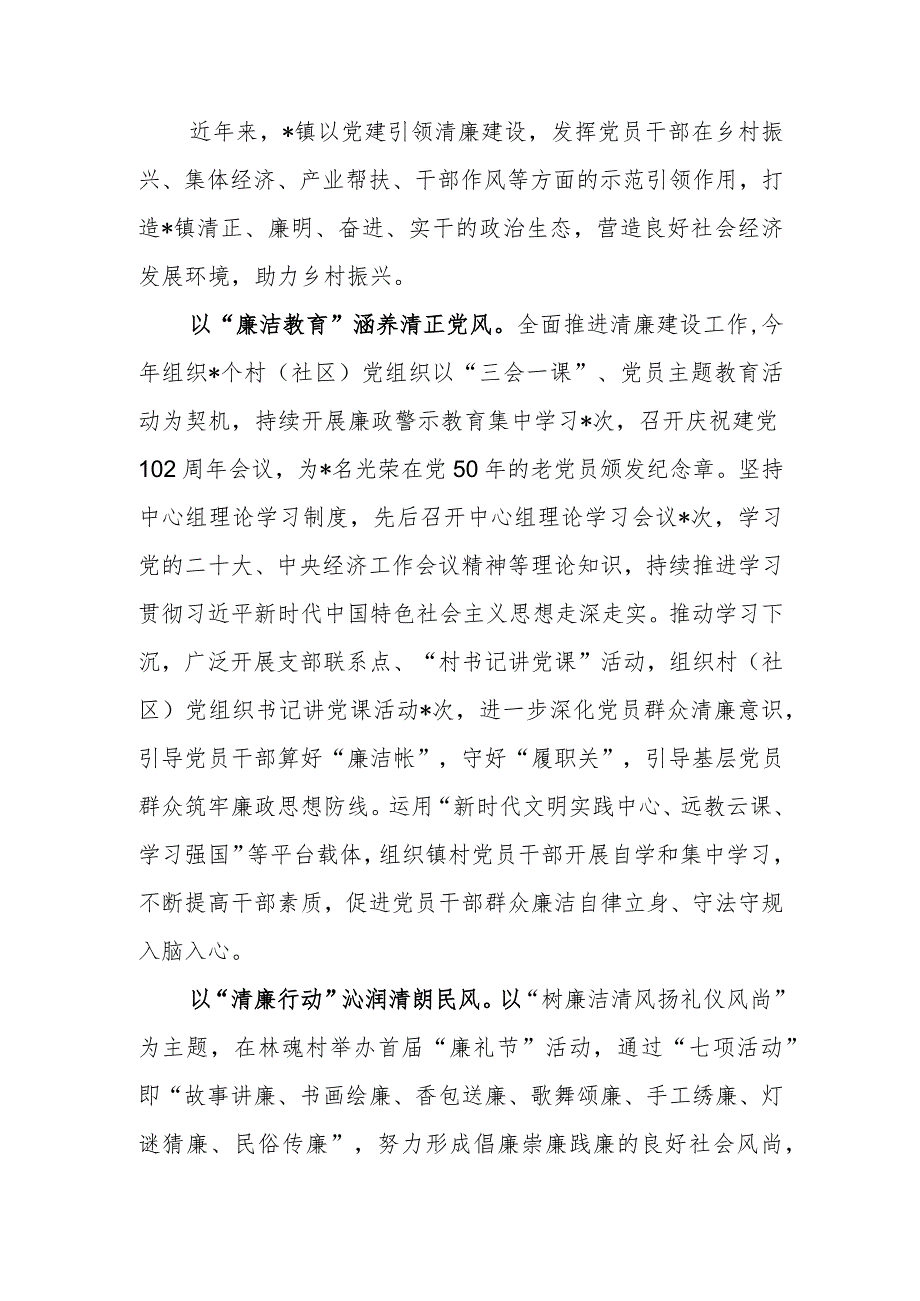 近年来，*镇以党建引领清廉建设，发挥党员干部在乡村振
兴、集体经济、产业帮扶、干部作风等方面的示范引领作用，打
造*镇清正、廉明、奋进、实干的政治生态，营造良好社会经济
发展环境，助力乡村振兴。
以“廉洁教育”涵养清正党风。全面推进清廉建设工作,今
年组织*个村（社区）党组织以“三会一课”、党员主题教育活
动为契机，持续开展廉政警示教育集中学习*次，召开庆祝建党
102 周年会议，为*名光荣在党 50 年的老党员颁发纪念章。坚持
中心组理论学习制度，先后召开中心组理论学习会议*次，学习
党的二十大、中央经济工作会议精神等理论知识，持续推进学习
贯彻习近平新时代中国特色社会主义思想走深走实。推动学习下
沉，广泛开展支部联系点、“村书记讲党课”活动，组织村（社
区）党组织书记讲党课活动*次，进一步深化党员群众清廉意识，
引导党员干部算好“廉洁帐”，守好“履职关”，引导基层党员
群众筑牢廉政思想防线。运用“新时代文明实践中心、远教云课、
学习强国”等平台载体，组织镇村党员干部开展自学和集中学习，
不断提高干部素质，促进党员干部群众廉洁自律立身、守法守规
入脑入心。
以“清廉行动”沁润清朗民风。以“树廉洁清风扬礼仪风尚”
为主题，在林魂村举办首届“廉礼节”活动，通过“七项活动”
即“故事讲廉、书画绘廉、香包送廉、歌舞颂廉、手工绣廉、灯
谜猜廉、民俗传廉”，努力形成倡廉崇廉践廉的良好社会风尚，